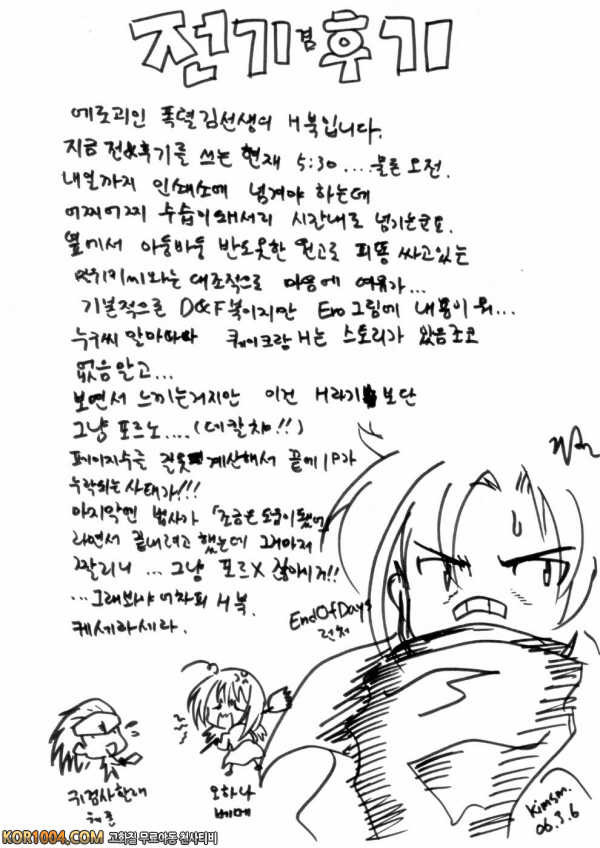 전기겸후기
에로괴인 폭렬김선생의 H북입니다.
지금 전&후기를 쓰는 현재 5:30....물론 오전.
내일까지 인쇄소에 넘겨야 하는데
어찌어찌 수습이 돼서리 시간내로 넘기온군요.
옆에서 아둥바둥 반도못한 원고로 피똥 싸고있는
대조적으로 마음에 여유가...
기본적으로 D&F북이지만 Ero그림에 내용이 뭐...
누구씨 말마따나 퀘이크랑 H는 스토리가 있음 초코
없음 말고...
보면서 느끼는거지만 이건 H라기 보단
그냥 포르노....(데칼챠!!)
페이지수를 잘못 계산해서 끝에 1P가
누락되는 사태가!!!
마지막엔 법사가 「조금은 도움이 됐어」
라면서 끝내려고 했는데 그마저
짤리니 ... 그냥 포르X 잖아이거!!
...그래봐야 어차피 H북.
케세라세라.
EndOfDays
런처
귀검사한래
오하나
베메
Kimsm.
06.3.6
KOR1004.COM 고화질 무료야동 천사티비